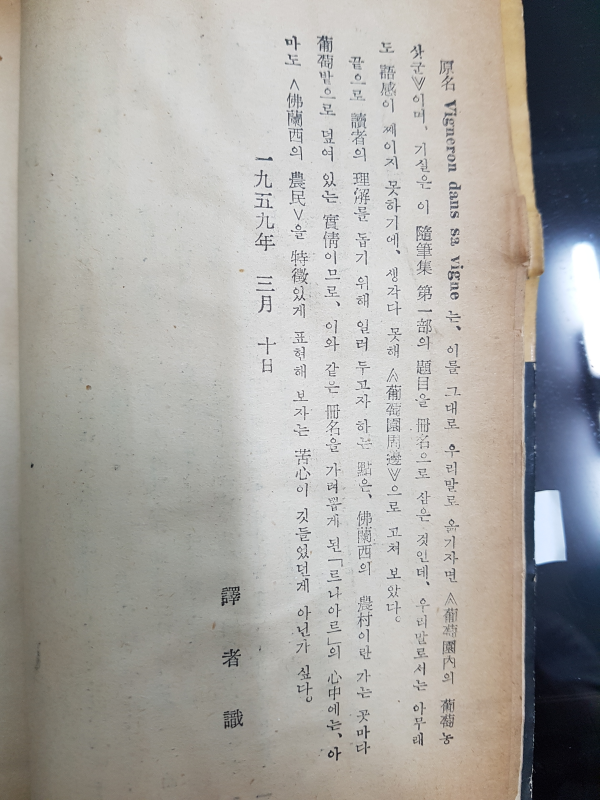 原名 Vigneron dans sa vigne 는, 이를 그대로 우리말로 옮기자면 ≪葡萄園內의 葡萄농
삿군≫이며, 기실은 이 隨筆集 第一部의 題目을 冊名으로 삼은 것인데, 우리말로서는 아무래
도 語感이 째이지 못하기에, 생각다 못해 ≪葡萄園周邊≫으로 고쳐 보았다.
끝으로 讀者의 理解를 돕기 위해 일러 두고자 하는 點은, 佛蘭西의 農村이란 가는 곳마다
葡萄밭으로 덮여 있는 實情이므로, 이와 같은 冊名을 가려 뽑게 된 「르나아르」의 心中에는, 아
마도 <佛蘭西의 農民>을 特徵있게 표현해 보자는 苦心이 깃들었던게 아닌가 싶다.
一九五九年 三月 十日
譯者識